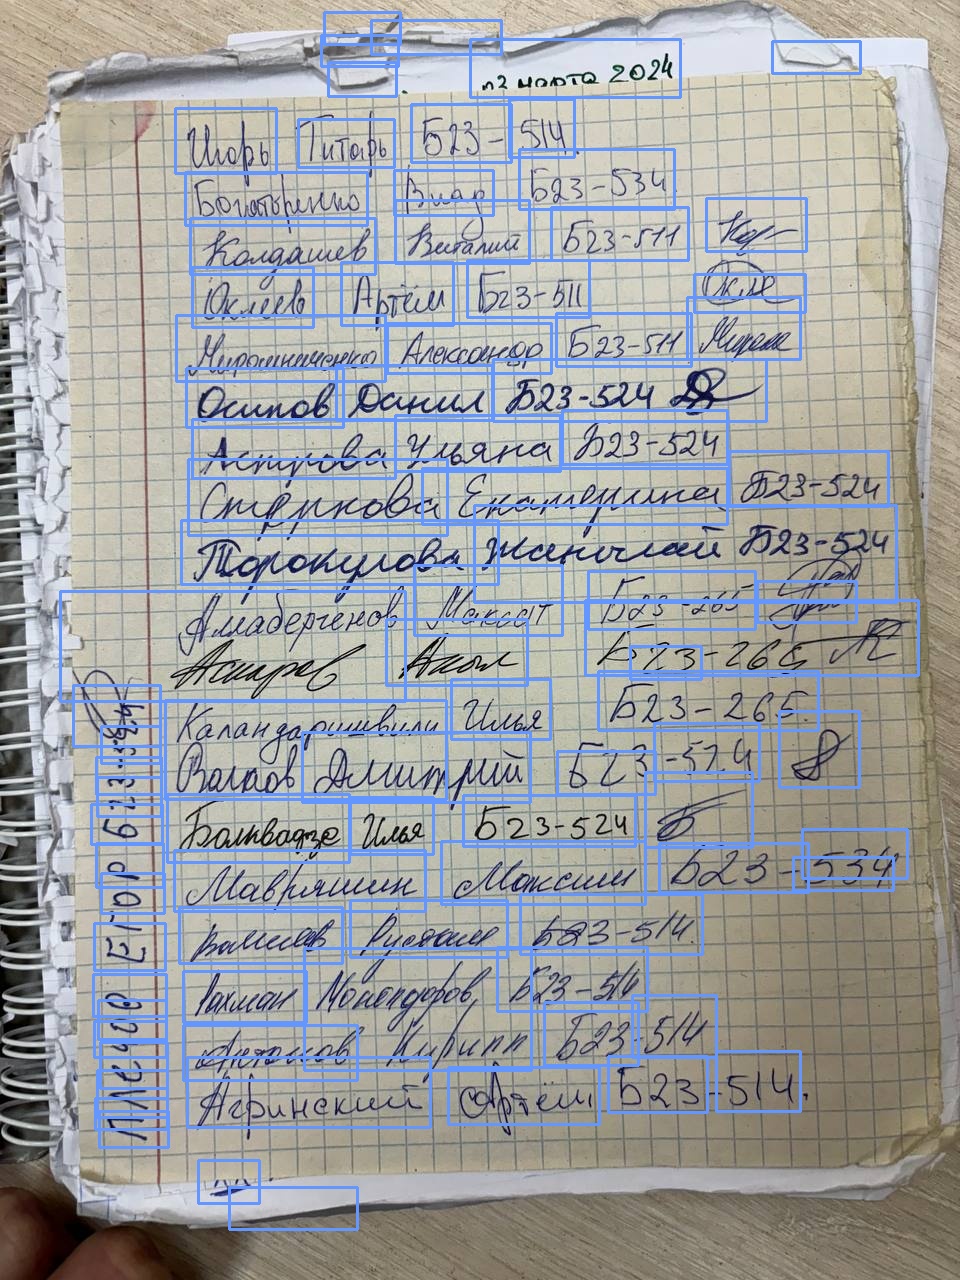 марта 2024
Игорь Титарь Б23-514
Богатыренко Влад Б23-534
Колдашев Виталий Б23-511
Оклеев Артём Б23-511
Мирошниченко Александр Б23-511
Осипов Данил Б23-524
Аспрова Ульяна Б23-524
Стернова Екатерина Б23-524
Торокулова Жанылай Б23-524
Аллабергенов Максат Б23-265
Аспаров Акыл Б23-265
Каландаришвили Илья Б23-265
Волков Дмитрий Б23-524
Болквадзе Илья Б23-524
Мавряшин Максим Б23-534
Валиев Рустам Б23-514
Рахман Б23-514
Антонов Кирилл Б23-514
Агринский Артём Б23-514.
ЕГОР